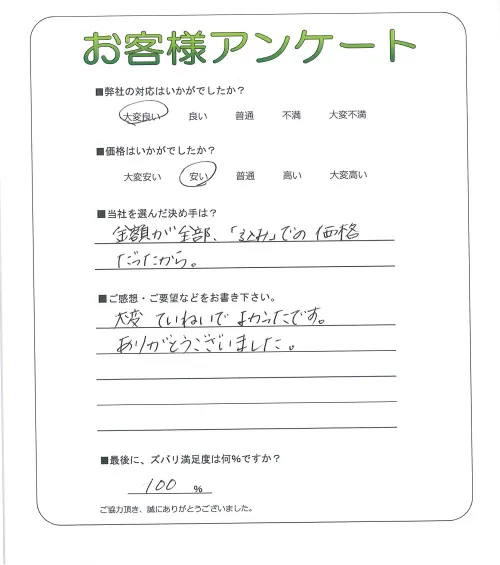 お客様アンケート
■弊社の対応はいかがでしたか？
大変良い 良い 普通 不満 大変不満
■価格はいかがでしたか？
大変安い 安い 普通 高い 大変高い
■当社を選んだ決め手は？
金額が全部、「込み」での価格
だったから。
■ご感想・ご要望などをお書き下さい。
大変 ていねいで よかったです。
ありがとうございました。
■最後に、ズバリ満足度は何%ですか？
100 %
ご協力頂き、誠にありがとうございました。